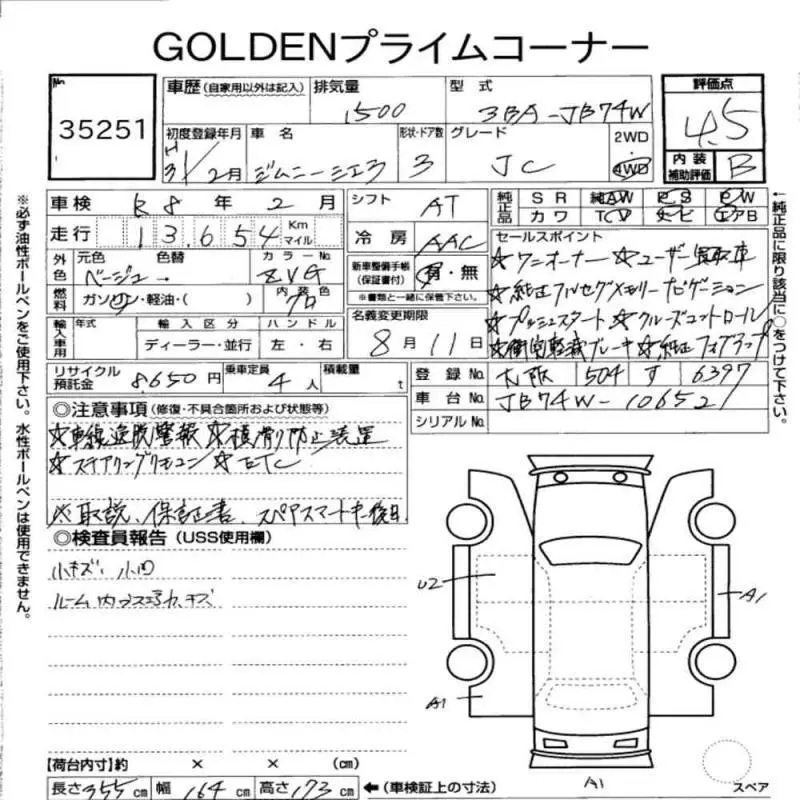 GOLDENプライムコーナー
No 35251
車歴 (自家用以外は記入) 排気量 1500 型式 3BA-JB74W
初度登録年月 H31/2月 車名 ジムニーシエラ 形状・ドア数 3 グレード JC 2WD 4WD
評価点 4.5
内装補助評価 B
車検 R8年2月
走行 13,654 Km マイル
外色 元色 ベージュ 色替 カラーNo. ZVG
燃料 ガソリン・軽油・( ) 内装色 クロ
輸入車用 年式 輸入区分 ディーラー・並行 ハンドル 左・右
シフト AT
冷房 AAC
新車整備手帳(保証書付) 有・無
※書類と一緒に保管下さい。
名義変更期限 8月11日
純正品 SR 純AW PS PW
カワ TV ナビ エアB
セールスポイント
☆ワンオーナー ☆ユーザー買取車
☆純正フルセグメモリーナビゲーション
☆プッシュスタート ☆クルーズコントロール
☆衝突軽減ブレーキ ☆純正フォグランプ
←純正品に限り該当に○をつけて下さい。
※必ず油性ボールペンをご使用下さい。水性ボールペンは使用できません。
リサイクル預託金 8,650円 乗車定員 4人 積載量 t
登録No. 大阪 504 す 6397
車台No. JB74W-106521
シリアルNo.
◎注意事項 (修復・不具合箇所および状態等)
☆車線逸脱警報 ☆横滑り防止装置
☆ステアリングリモコン ☆ETC
※取説、保証書、スペアスマートキー後日
◎検査員報告 (USS使用欄)
小キズ、小凹
ルーム内
キズ
U2
A1
A1
A1
スペア
【荷台内寸】約 × × (cm)
長さ 355 cm 幅 164 cm 高さ 173 cm ←(車検証上の寸法)